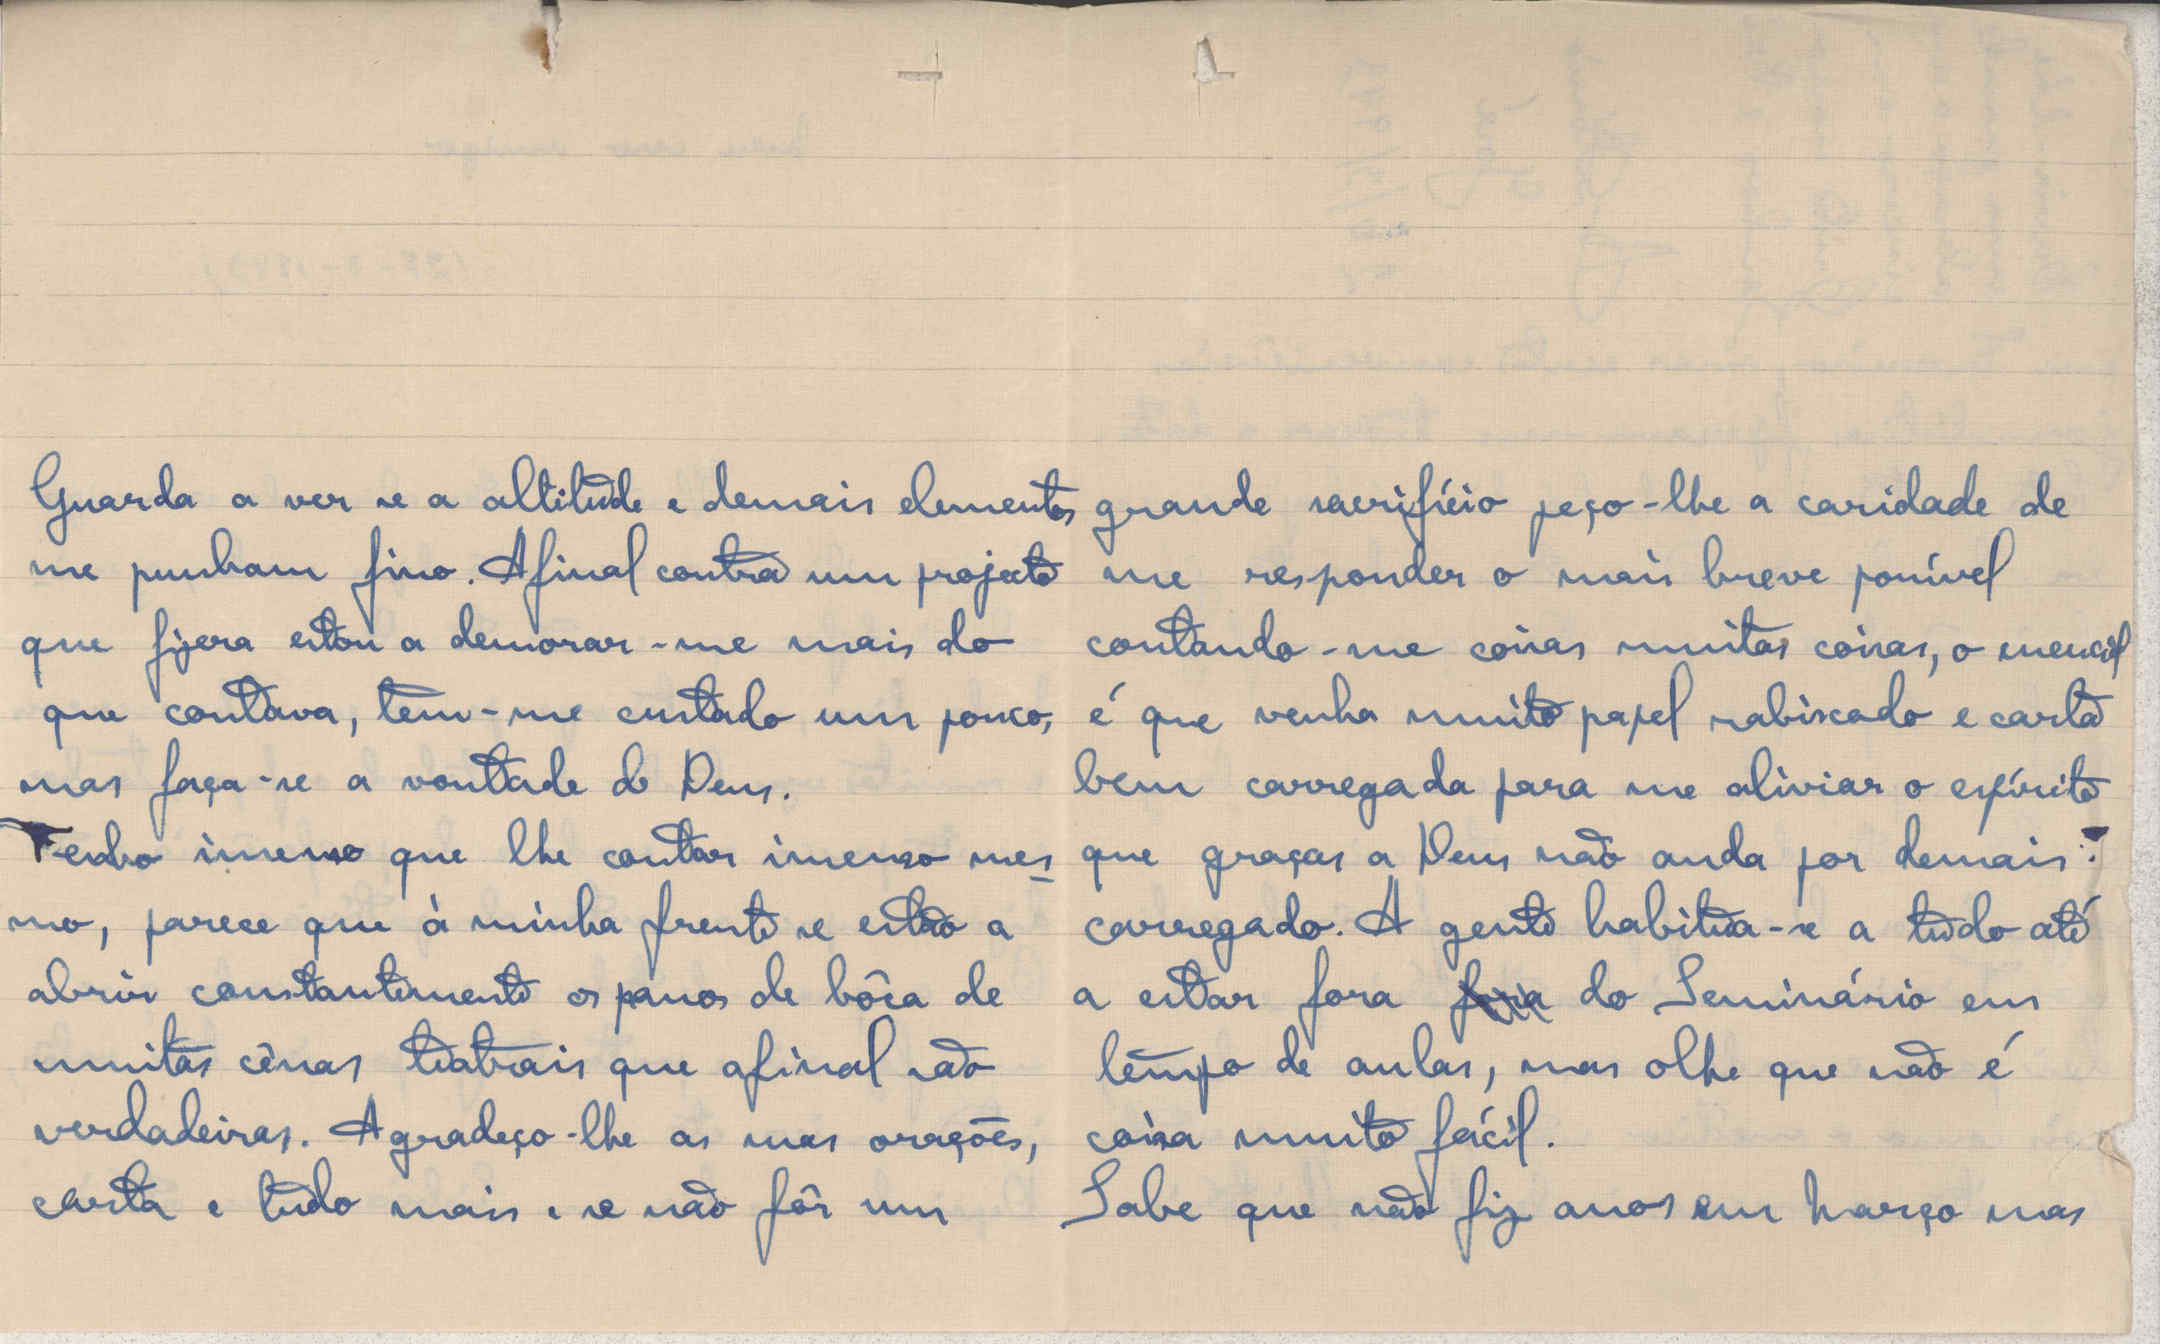 Guarda a ver se a altitude e demais elementos
me punham fino. Afinal contra um projecto
que fizera estou a demorar-me mais do
que contava, tem-me custado um pouco,
mas faça-se a vontade de Deus.
Tenho imenso que lhe contar imenso mes
mo, parece que à minha frente se estão a
abrir constantemente os panos de bôca de
muitas cênas teatrais que afinal são
verdadeiras. Agradeço-lhe as suas orações,
carta e tudo mais e se não fôr um
grande sacrifício peço-lhe a caridade de
me responder o mais breve possível
contando-me coisas muitas coisas, o essencial
é que venha muito papel rabiscado e carta
bem carregada para me aliviar o espírito
que graças a Deus não anda por demais
carregado. A gente habitua-se a tudo até
a estar fora do Seminário em
tempo de aulas, mas olhe que não é
coisa muito fácil.
Sabe que não fiz anos em Março mas